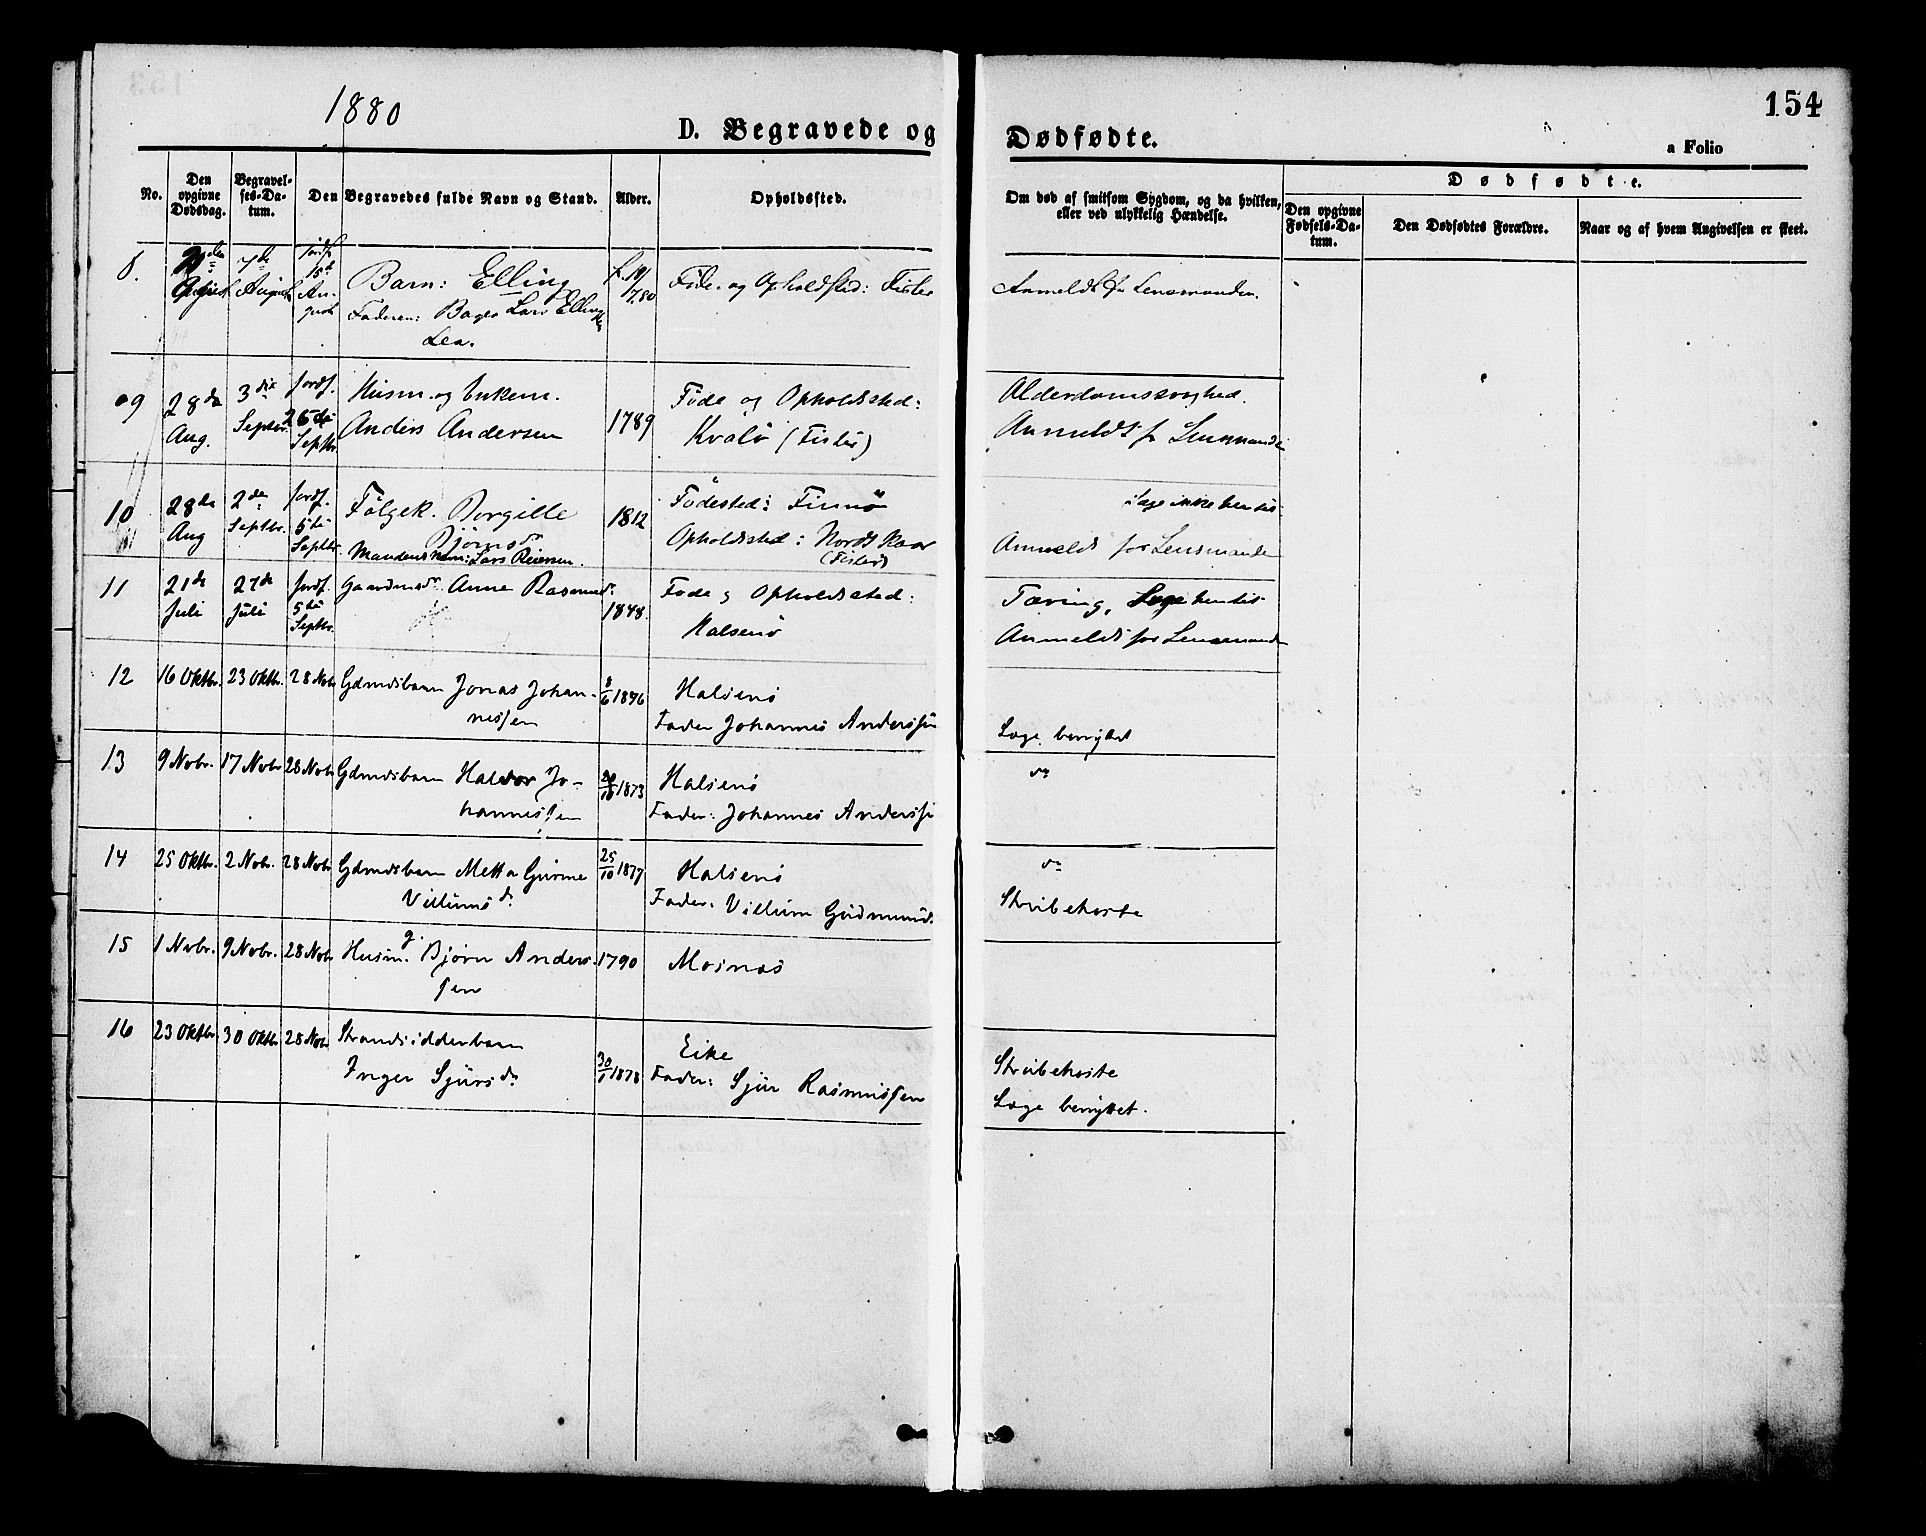 1880
154
D. Begravede og Dødfødte.
a Folio
No.
Den opgivne Dødsdag.
Begravelses-Datum.
Den Begravedes fulde Navn og Stand.
Alder.
Opholdssted.
Om død af smitsom Sygdom, og da hvilken, eller ved ulykkelig Hændelse.
Dødfødte.
Den opgivne Fødsels-Datum.
Den Dødfødtes Forældre.
Naar og af hvem Angivelsen er skeet.
8. August 7de August 15de August Barn: Elling Føde- og Opholdsted: Fister Anmeldt for Lensmanden.
Faderen: Lars
Lea.
9 28de Aug. 3die Septbr. Jordf. Septbr. Husm. og Enkem. 1789 Føde og Opholdssted: Alderdomssvaghed.
Anders Andersen Kvalø (Fister) Anmeldt f Lensmanden
10 28de Aug 2den Septbr. Jordf. 5te Septbr. Følgek. Borgille 1812 Fødested: Finnø Læge ikke hentet.
Bjørnsdr Opholdssted: Nordt Kaar Anmeldt for Lensmanden
Mandens Navn: Lars Reiersen. (Fister)
11 21de Juli 27de Juli Jordf. 5te Septbr. Gaardmdr. Anne Rasmusdr. 1848. Føde og Opholdssted: Tæring, Læge hentet
Halsenø Anmeldt for Lensmanden
12 16 Oktbr. 23 Oktbr. 28 Nobr Gdmdsbarn Jonas Johan- 1876 Halsenø
nessen Fader Johannes Anderssen Læge benyttet
13 9 Nobr. 17 Nobr 28 Nobr Gdmdsbarn Halvor Jo- 1873 Halsenø do
hannessen Fader: Johannes Anderssen
14 25 Oktbr. 2 Nobr. 28 Nobr Gdmdsbarn Metta Gurine 25/10 1877 Halsenø do
Villumsdr. Fader: Villum Gudmunds. Strubehoste
15 1 Nobr. 9 Nobr. 28 Nobr Husm. g. Bjørn Anders- 1790 Mosnæs
sen
16 23 Oktbr. 30 Oktbr 28 Nobr Strandsidderbarn Eike
Inger Sjursdr 30/1 1878 Fader: Sjur Rasmussen Strubehoste
Læge benyttet.